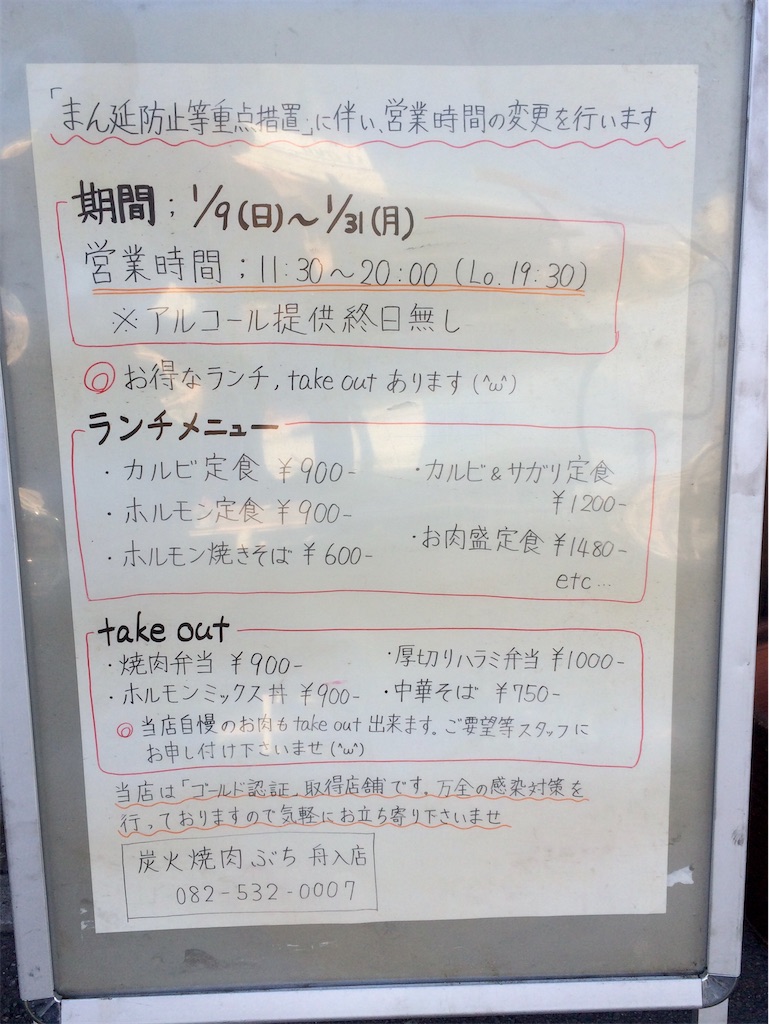 「まん延防止等重点措置」に伴い、営業時間の変更を行います
期間；1/9(日)～1/31(月)
営業時間；11:30～20:00 (Lo.19:30)
※アルコール提供終日無し
◎お得なランチ, take out あります(^ω^)
ランチメニュー
・カルビ定食 ¥900-
・ホルモン定食 ¥900-
・ホルモン焼きそば ¥600-
・カルビ&サガリ定食
¥1200-
・お肉盛定食 ¥1480-
etc…
take out
・焼肉弁当 ¥900-
・厚切りハラミ弁当 ¥1000-
・ホルモンミックス丼 ¥900-
・中華そば ¥750-
◎当店自慢のお肉も take out 出来ます。ご要望等スタッフに
お申し付け下さいませ(^ω^)
当店は「ゴールド認証」取得店舗です。万全の感染対策を
行っておりますので気軽にお立ち寄り下さいませ
炭火焼肉ぶち 舟入店
082-532-0007